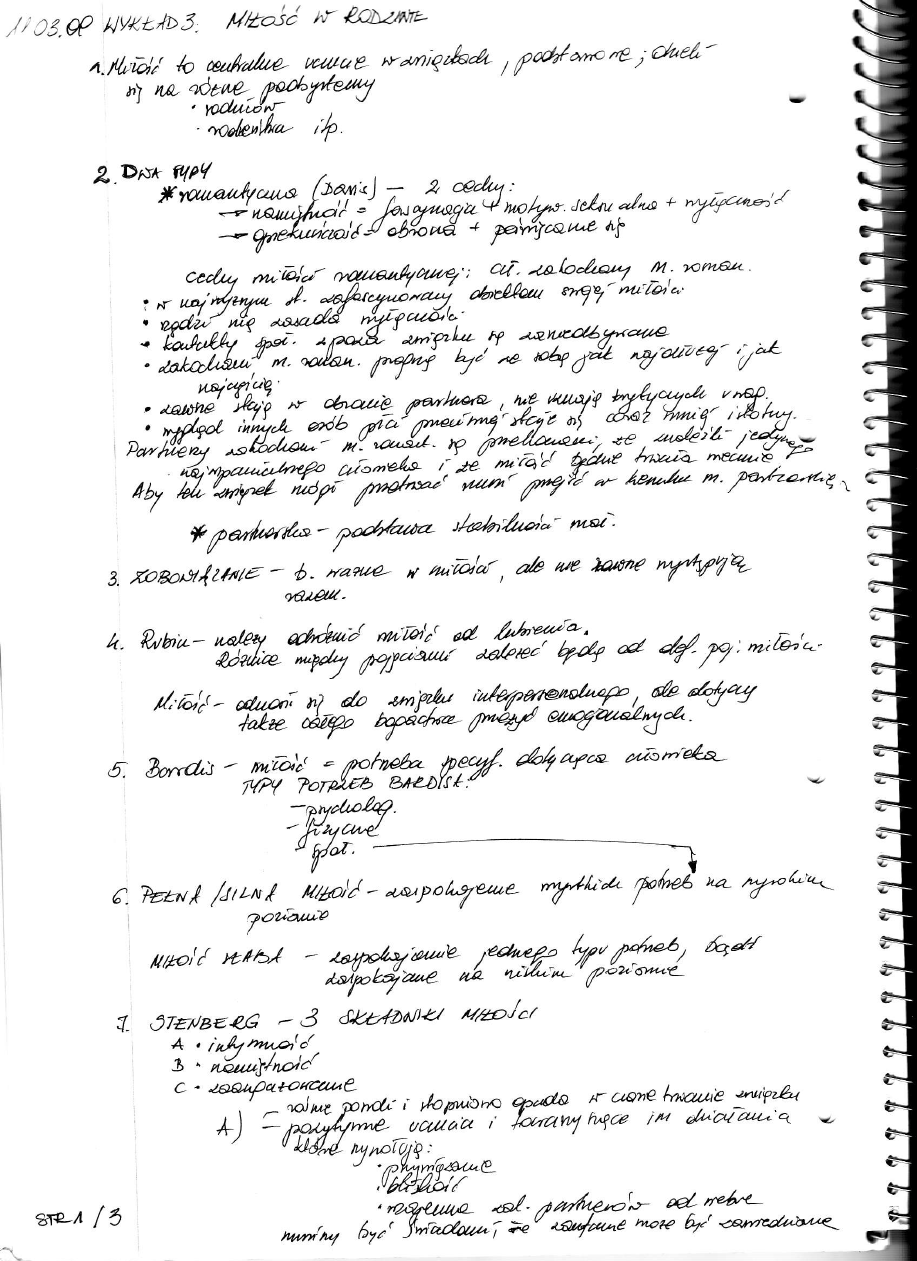 11.03.08 WYKŁAD 3: MIŁOŚĆ W RODZINIE
1. Miłość to centralne uczucie w związkach, podstawowe; dzieli
się na różne podsystemy
• rodziców
• rodzeństwa itp.
2. DWA TYPY
* romantyczna (Davis) – 2 cechy:
→ namiętność = fascynacja + motyw. seksualna + wyłączność
→ opiekuńczość = obrona + poświęcanie się
Cechy miłości romantycznej: Czł. zakochany m. roman.
• w najwyższym st. zafascynowany obiektem swojej miłości
• rządzi nią zasada wyłączności
• kontakty społ. spoza związku są zaniedbywane
• zakochani m. roman. pragną być ze sobą jak najdłużej i jak
najczęściej
• zawsze stają w obronie partnera, nie uznają krytycznych uwag.
• wygląd innych osób płci przeciwnej staje się coraz mniej istotny.
Partnerzy zakochani m. romant. są przekonani, że znaleźli jedynego
najwspanialszego człowieka i że miłość będzie trwała wiecznie
Aby taki związek mógł przetrwać musi przejść w kierunku m. partnerskiej
* partnerska – podstawa stabilności małż.
3. ZOBOWIĄZANIE – b. ważne w miłości, ale nie zawsze występują
razem.
4. Rubin – należy odróżnić miłość od lubienia.
Różnice między pojęciami zależeć będą od def. poj. miłości.
Miłość – odnosi się do związku interpersonalnego, ale dotyczy
także całego bogactwa przeżyć emocjonalnych.
5. – miłość = potrzeba specyf. dotycząca człowieka
TYPY POTRZEB
– psycholog.
– fizyczne
– społ.
6. PEŁNA / SILNA MIŁOŚĆ – zaspokojenie wszystkich potrzeb na wysokim
poziomie
MIŁOŚĆ SŁABA – zaspokojenie jednego typu potrzeb, bądź
zaspokajane na niskim poziomie
7. STENBERG – 3 SKŁADNIKI MIŁOŚCI
A • intymność
B • namiętność
C • zaangażowanie
A) – rośnie powoli i stopniowo opada w czasie trwania związku
– pozytywne uczucia i towarzyszące im działania
które wywołują:
• przywiązanie
• bliskość
• wzajemna zal. partnerów od siebie
musimy być świadomi, że zaufanie może być zawiedzione
STR 1/3